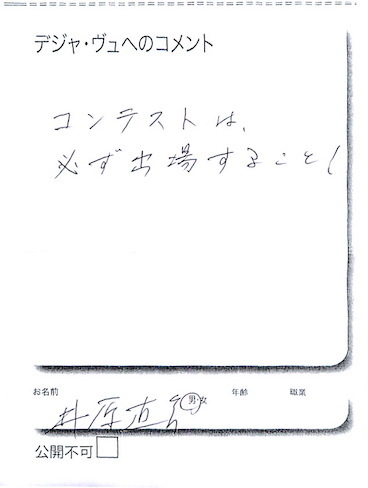 デジャ・ヴュへのコメント
コンテストは、
必ず出場すること!
お名前 男・女 年齢 職業
井原直
公開不可